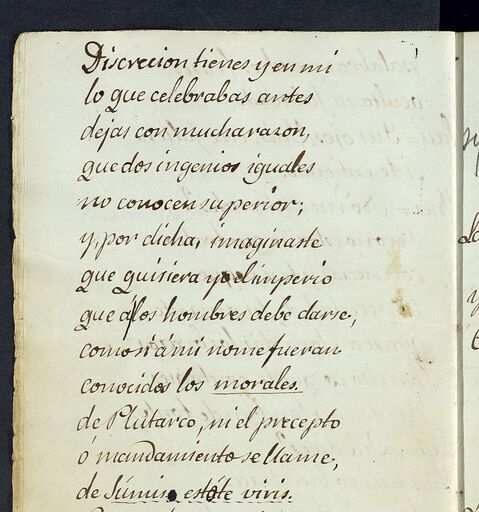 Discrecion tienes y en mi
lo que celebrabas antes
dejas con mucha razon,
que dos ingenios iguales
no conocen superior;
y, por dicha, imaginaste
que quisiera yo el imperio
que á los hombres debe darse,
como si á mi no me fueran
conocidos los morales
de Plutarco, ni el precepto
ó mandamiento se llame,
de Súmiso estóte viris.